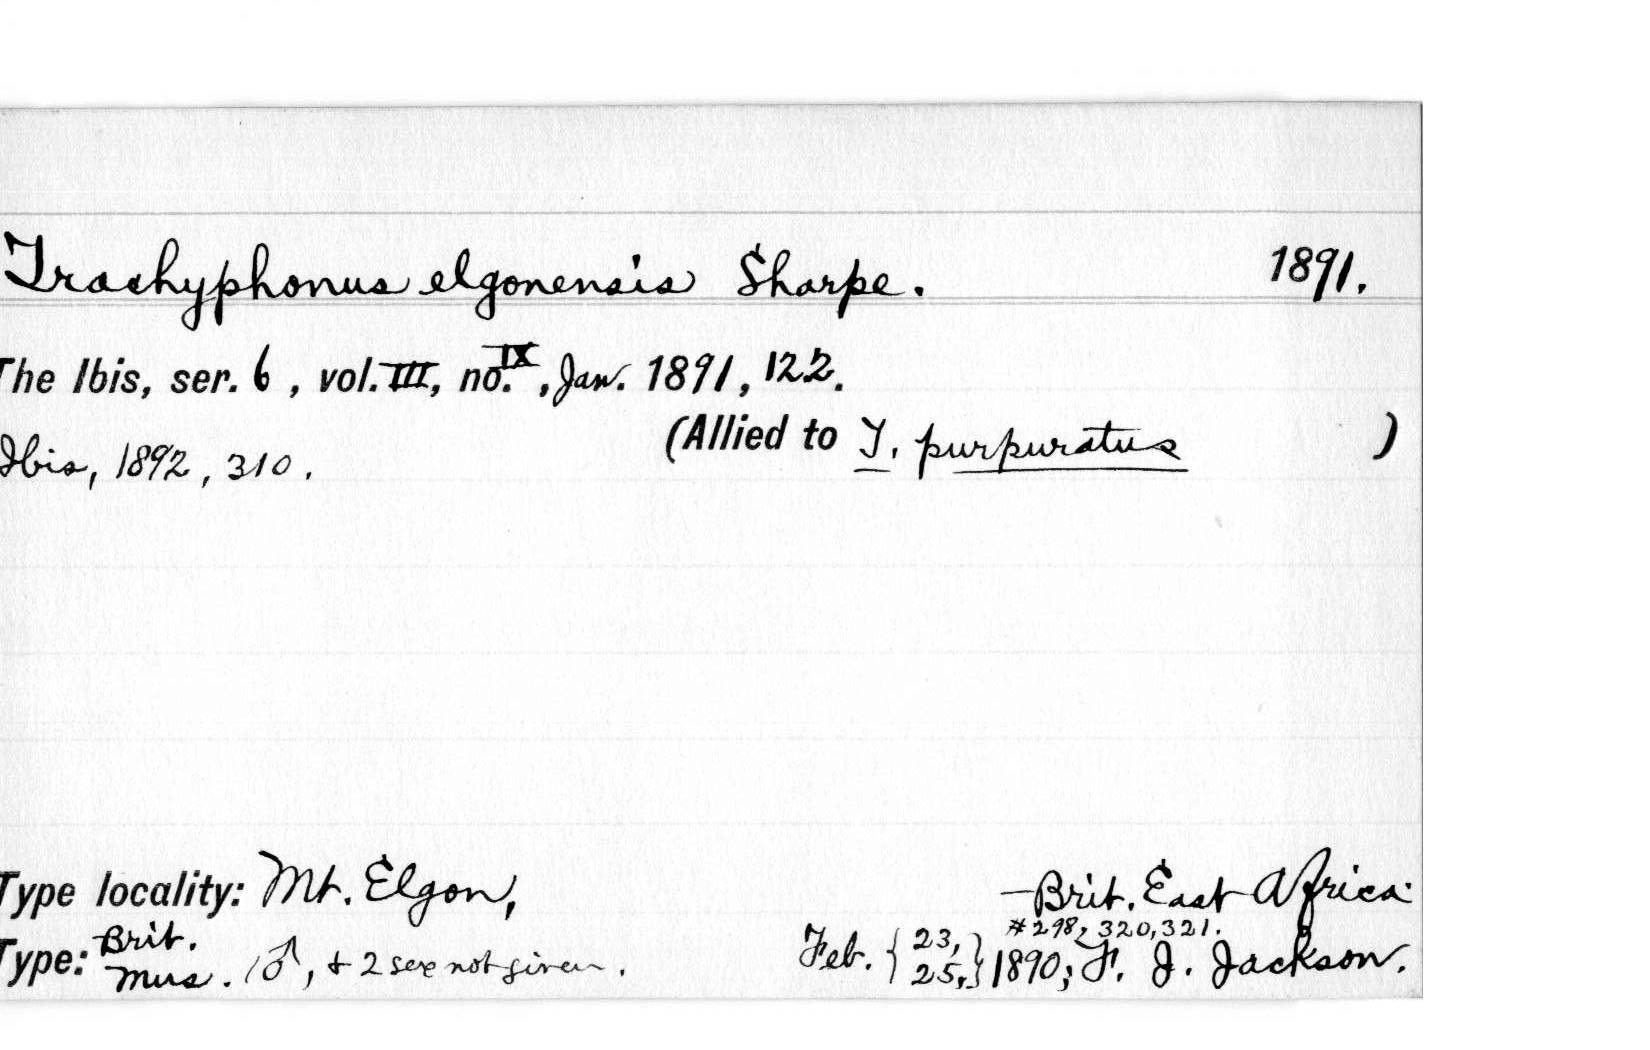 Trachyphonus elgonensis Sharpe. 1891.
The Ibis, ser. 6, vol. III, no. IX, Jan. 1891, 122.
(Allied to T. purpuratus )
Ibis, 1892, 310.
Type locality: Mt. Elgon, —Brit. East Africa.
#298, 320, 321.
Type: Brit. Mus. 1♂, + 2 sex not given. Feb. {23, 25,} 1890; F. J. Jackson.